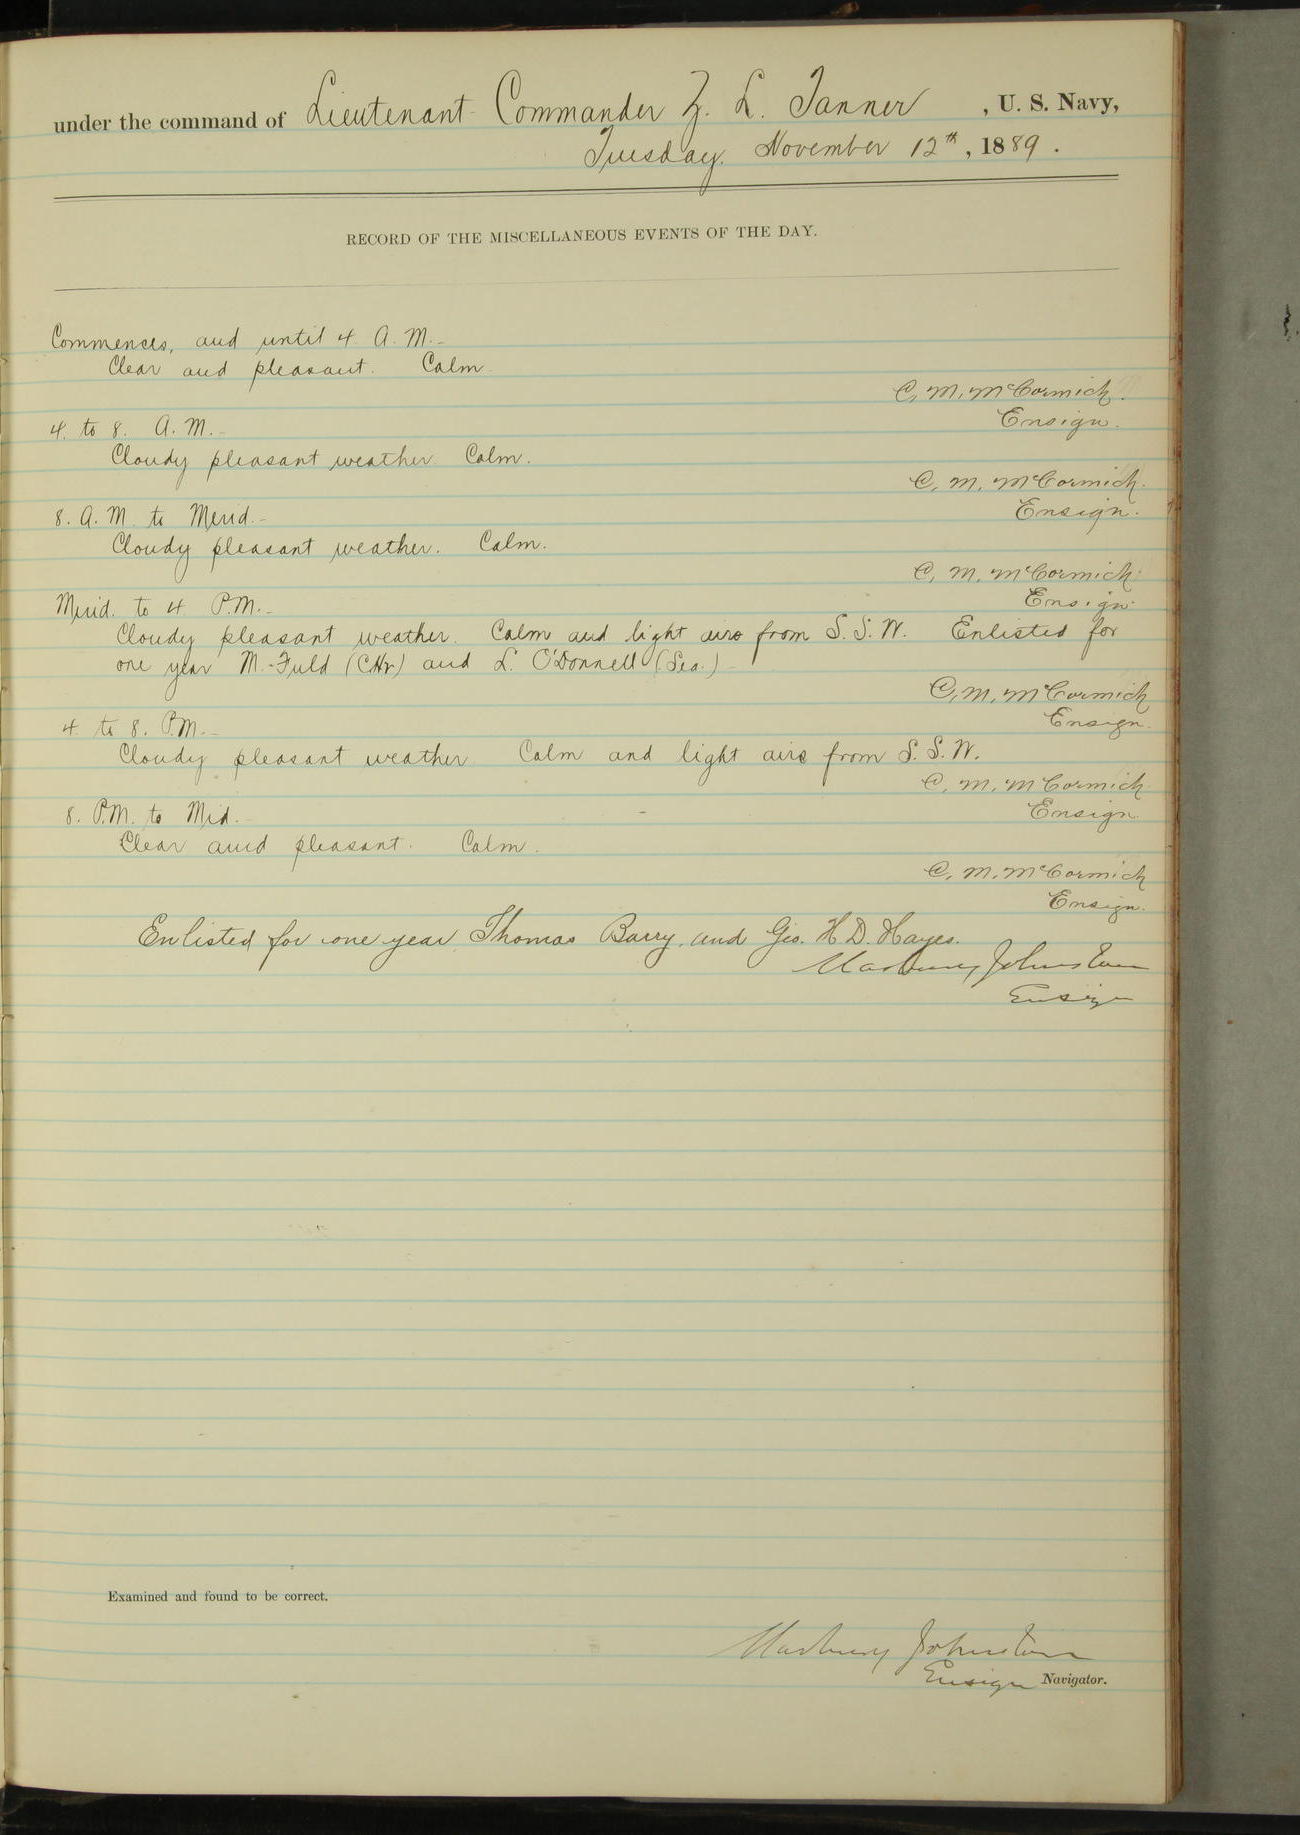 under the command of Lieutenant Commander Z. L. Tanner, U. S. Navy,
Tuesday, November 12th, 1889.
RECORD OF THE MISCELLANEOUS EVENTS OF THE DAY.
Commences, and until 4 A. M.-
Clear and pleasant. Calm.
C. M. McCormick.
Ensign.
4. to 8. A. M.-
Cloudy pleasant weather. Calm.
C. M. McCormick.
Ensign.
8. A. M. to Merid.-
Cloudy pleasant weather. Calm.
C. M. McCormick
Ensign.
Merid. to 4 P.M.-
Cloudy pleasant weather. Calm and light airs from S. S. W. Enlisted for
one year M. Fuld and L. O'Donnell (Sea.)-
C. M. McCormick
Ensign.
4 to 8. P.M.-
Cloudy pleasant weather Calm and light airs from S. S. W.
C. M. McCormick
Ensign.
8. P.M. to Mid.-
Clear and pleasant. Calm.
C. M. McCormick
Ensign.
Enlisted for one year Thomas Barry, and Geo. H D. Hayes.
Marbury Johnston
Ensign
Examined and found to be correct.
Marbury Johnston
Ensign Navigator.